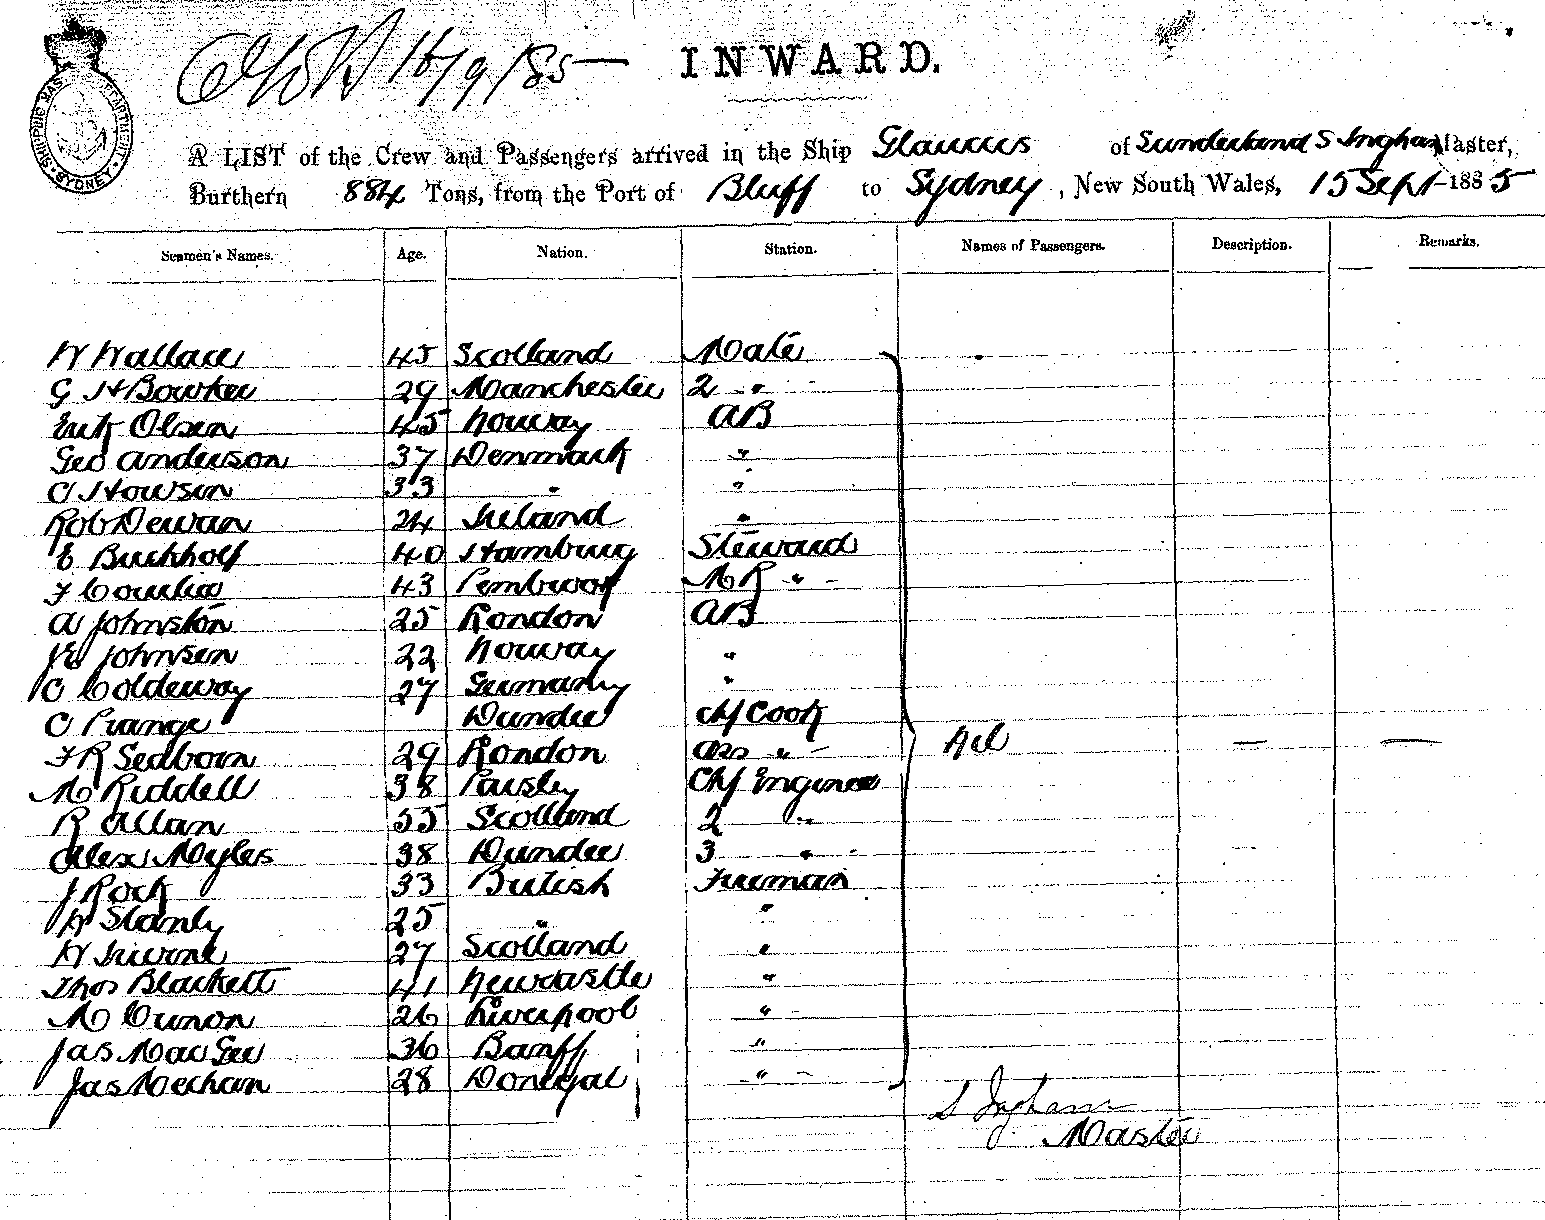 16/9/85
INWARD.
SHIPPING MASTER'S DEPARTMENT SYDNEY
A LIST of the Crew and Passengers arrived in the Ship Glaucus of Sunderland S Ingham Master,
Burthern 884 Tons, from the Port of Bluff to Sydney, New South Wales, 15 Sept 1885
Seamen's Names. Age. Nation. Station. Names of Passengers. Description. Remarks.
W Wallace 45 Scotland Mate
G H Bowker 29 Manchester 2 "
Erik Olsen 45 Norway AB
Geo Anderson 37 Denmark "
C Howson 33 " "
Rob Dewan 24 Ireland "
E Buchholf 40 Hamburg Steward
F 43 Pembrok M R "
A Johnston 25 London AB
J E Johnsen 22 Norway "
C Coldeway 27 Germany "
C Prange Dundee Chf Cook
F R Seaborn 29 London ass " Nil — —
M Riddell 38 Paisley Chf Engineer
R Allan 35 Scotland 2 "
Alex Myles 38 Dundee 3 "
J Rock 33 British Fireman
W Stanly 25 " "
W 27 Scotland "
Thos Blackett 41 Newcastle "
M 26 Liverpool "
Jas MacGee 36 Banff "
Jas Mechan 28 Donegal "
S Ingham
Master